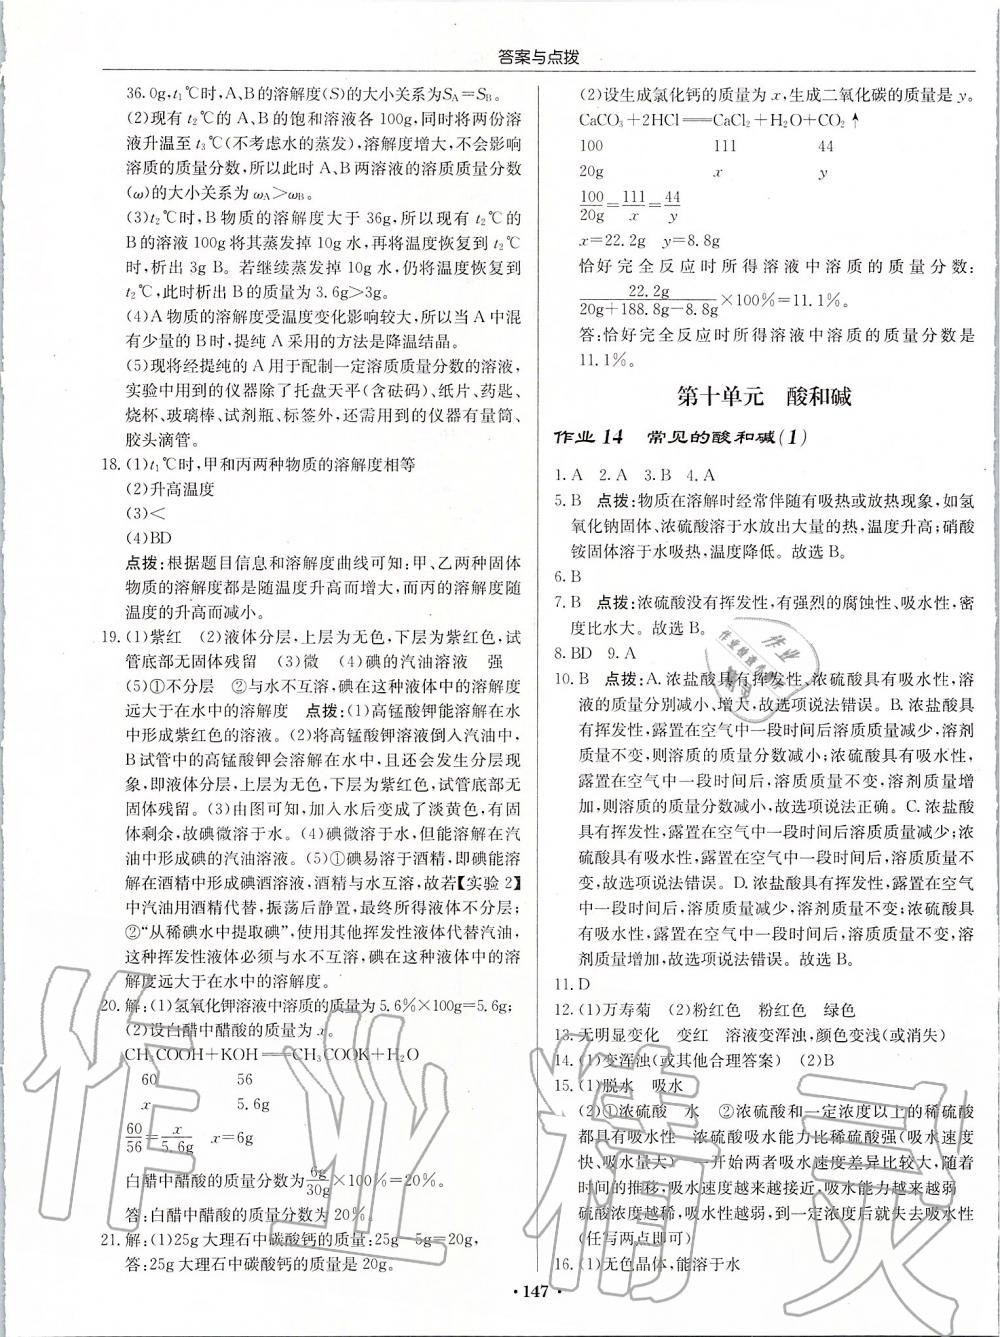 答案与点拨
36.0g,t₁℃时,A、B的溶解度(S)的大小关系为S_A=S_B。
(2)现有t₂℃的A、B的饱和溶液各100g,同时将两份溶
液升温至t₃℃(不考虑水的蒸发),溶解度增大,不会影响
溶质的质量分数,所以此时A、B两溶液的溶质质量分数
(ω)的大小关系为ω_A>ω_B。
(3)t₂℃时,B物质的溶解度大于36g,所以现有t₂℃的
B的溶液100g将其蒸发掉10g水,再将温度恢复到t₂℃
时,析出3g B。若继续蒸发掉10g水,仍将温度恢复到
t₂℃,此时析出B的质量为3.6g>3g。
(4)A物质的溶解度受温度变化影响较大,所以当A中混
有少量的B时,提纯A采用的方法是降温结晶。
(5)现将经提纯的A用于配制一定溶质质量分数的溶液,
实验中用到的仪器除了托盘天平(含砝码)、纸片、药匙、
烧杯、玻璃棒、试剂瓶、标签外,还需用到的仪器有量筒、
胶头滴管。
18.(1)t₁℃时,甲和丙两种物质的溶解度相等
(2)升高温度
(3)<
(4)BD
点拨:根据题目信息和溶解度曲线可知:甲、乙两种固体
物质的溶解度都是随温度升高而增大,而丙的溶解度随
温度的升高而减小。
19.(1)紫红 (2)液体分层,上层为无色,下层为紫红色,试
管底部无固体残留 (3)微 (4)碘的汽油溶液 强
(5)①不分层 ②与水不互溶,碘在这种液体中的溶解度
远大于在水中的溶解度 点拨:(1)高锰酸钾能溶解在水
中形成紫红色的溶液。(2)将高锰酸钾溶液倒入汽油中,
B试管中的高锰酸钾会溶解在水中,且还会发生分层现
象,即液体分层,上层为无色,下层为紫红色,试管底部无
固体残留。(3)由图可知,加入水后变成了淡黄色,有固
体剩余,故碘微溶于水。(4)碘微溶于水,但能溶解在汽
油中形成碘的汽油溶液。(5)①碘易溶于酒精,即碘能溶
解在酒精中形成碘酒溶液,酒精与水互溶,故若【实验2】
中汽油用酒精代替,振荡后静置,最终所得液体不分层;
②“从稀碘水中提取碘”,使用其他挥发性液体代替汽油,
这种挥发性液体必须与水不互溶,碘在这种液体中的溶
解度远大于在水中的溶解度。
20.解:(1)氢氧化钾溶液中溶质的质量为5.6%×100g=5.6g;
(2)设白醋中醋酸的质量为x。
CH₃COOH+KOH══CH₃COOK+H₂O
60 56
x 5.6g
60/56=x/5.6g x=6g
白醋中醋酸的质量分数为6g/30g×100%=20%。
答:白醋中醋酸的质量分数为20%。
21.解:(1)25g大理石中碳酸钙的质量:25g-5g=20g,
答:25g大理石中碳酸钙的质量是20g。
(2)设生成氯化钙的质量为x,生成二氧化碳的质量是y。
CaCO₃+2HCl══CaCl₂+H₂O+CO₂↑
100 111 44
20g x y
100/20g=111/x=44/y
x=22.2g y=8.8g
恰好完全反应时所得溶液中溶质的质量分数:
22.2g/(20g+188.8g-8.8g)×100%=11.1%。
答:恰好完全反应时所得溶液中溶质的质量分数是
11.1%。
第十单元 酸和碱
作业14 常见的酸和碱(1)
1.A 2.A 3.B 4.A
5.B 点拨:物质在溶解时经常伴随有吸热或放热现象,如氢
氧化钠固体、浓硫酸溶于水放出大量的热,温度升高;硝酸
铵固体溶于水吸热,温度降低。故选B。
6.B
7.B 点拨:浓硫酸没有挥发性,有强烈的腐蚀性、吸水性,密
度比水大。故选B。
8.BD 9.A
10.B 点拨:A.浓盐酸具有挥发性、浓硫酸具有吸水性,溶
液的质量分别减小、增大,故选项说法错误。B.浓盐酸具
有挥发性,露置在空气中一段时间后溶质质量减少,溶剂
质量不变,则溶质的质量分数减小;浓硫酸具有吸水性,
露置在空气中一段时间后,溶质质量不变,溶剂质量增
加,则溶质的质量分数减小,故选项说法正确。C.浓盐酸
具有挥发性,露置在空气中一段时间后溶质质量减少;浓
硫酸具有吸水性,露置在空气中一段时间后,溶质质量不
变,故选项说法错误。D.浓盐酸具有挥发性,露置在空气
中一段时间后,溶质质量减少,溶剂质量不变;浓硫酸具
有吸水性,露置在空气中一段时间后,溶质质量不变,溶
剂质量增加,故选项说法错误。故选B。
11.D
12.(1)万寿菊 (2)粉红色 粉红色 绿色
13.无明显变化 变红 溶液变浑浊,颜色变浅(或消失)
14.(1)变浑浊(或其他合理答案) (2)B
15.(1)脱水 吸水
(2)①浓硫酸 水 ②浓硫酸和一定浓度以上的稀硫酸
都具有吸水性 浓硫酸吸水能力比稀硫酸强(吸水速度
快、吸水量大) 一开始两者吸水速度差异比较大,随着
时间的推移,吸水速度越来越接近,吸水能力越来越弱
硫酸浓度越稀,吸水性越弱,到一定浓度后就失去吸水性
(任写两点即可)
16.(1)无色晶体,能溶于水
·147·
作业精灵